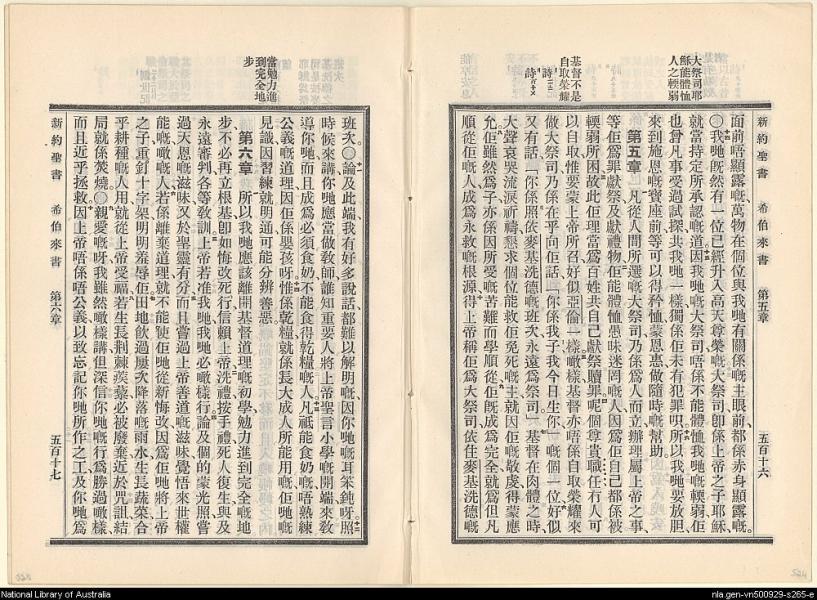 大祭司耶
穌能體恤
人之輭弱
基督不是
自取榮耀
詩
詩
新約聖書 希伯來書 第五章 五百十六
面前唔顯露嘅萬物在個位與我哋有關係嘅主眼前都係赤身顯露嘅
〇我哋旣然有一位已經升入高天尊榮嘅大祭司卽係上帝之子耶穌
就當持定所承認嘅道因我哋嘅大祭司唔係不能體恤我哋嘅輭弱佢
也曾凡事受過試探共我哋一樣獨係佢未有犯罪呮所以我哋要放胆
來到施恩嘅寶座前等可以得矜恤蒙恩惠做隨時嘅幫助
第五章 凡從人間所選嘅大祭司乃係爲人而立辦理屬上帝之事
等佢爲罪獻祭及獻禮物佢能體恤愚味迷罔嘅人因爲佢自己都係被
輭弱所困故此佢理當爲百姓共自己獻祭贖罪呢個尊貴職任冇人可
以自取惟要蒙上帝所召好似亞倫一樣噉樣基督亦唔係自取榮耀來
做大祭司乃係在乎向佢話你係我子我今日生你一嘅個一位好似
又有話你係照依麥基洗德嘅班次永遠爲祭司一基督在肉體之時
大聲哀哭流淚祈禱懇求個位能救佢免死嘅主就因佢嘅敬虔得蒙應
允佢雖然爲子亦係因所受嘅苦難而學順從佢旣成爲完全就爲但凡
順從佢嘅人成爲永救嘅根源得上帝稱佢爲大祭司依住麥基洗德嘅
當勉力進
到完全地
步
班次〇論及此端我有好多說話都難以解明嘅因你哋嘅耳笨鈍呀照
時候來講你哋應當做敎師誰知重要人將上帝聖言小學嘅開端來敎
導你哋而且成爲必須食奶不能食得乾糧嘅人凡祗能食奶嘅唔熟練
公義嘅道理因佢係嬰孩呀惟係乾糧就係長大成人所能用嘅佢哋嘅
見識因習練就明通可能分辨善惡
第六章 所以我哋應該離開基督道理嘅初學勉力進到完全嘅地
步不必再立根基卽如悔改死行信賴上帝洗禮按手禮死人復生與及
永遠審判各等敎訓上帝若准我哋我哋必噉樣行論及個的蒙光照嘗
過天恩嘅滋味又於聖靈有分而且嘗過上帝善道嘅滋味覺悟來世權
能嘅噉嘅人若係離棄道理就不能使佢哋從新悔改因佢哋將上帝
之子重釘十字架明明羞辱佢田地飲過屢次降落嘅雨水生長蔬菜合
乎耕種嘅人用就從上帝受福若生長荆棘蒺藜必被廢棄近於咒詛結
局就係焚燒〇親愛嘅呀我雖然噉樣講但深信你哋嘅行爲勝過噉樣
而且近乎拯救因上帝唔係唔公義以致忘記你哋所作之工及你哋爲
新約聖書 希伯來書 第六章 五百十七
National Library of Australia
nla.gen-vn500929-s265-e